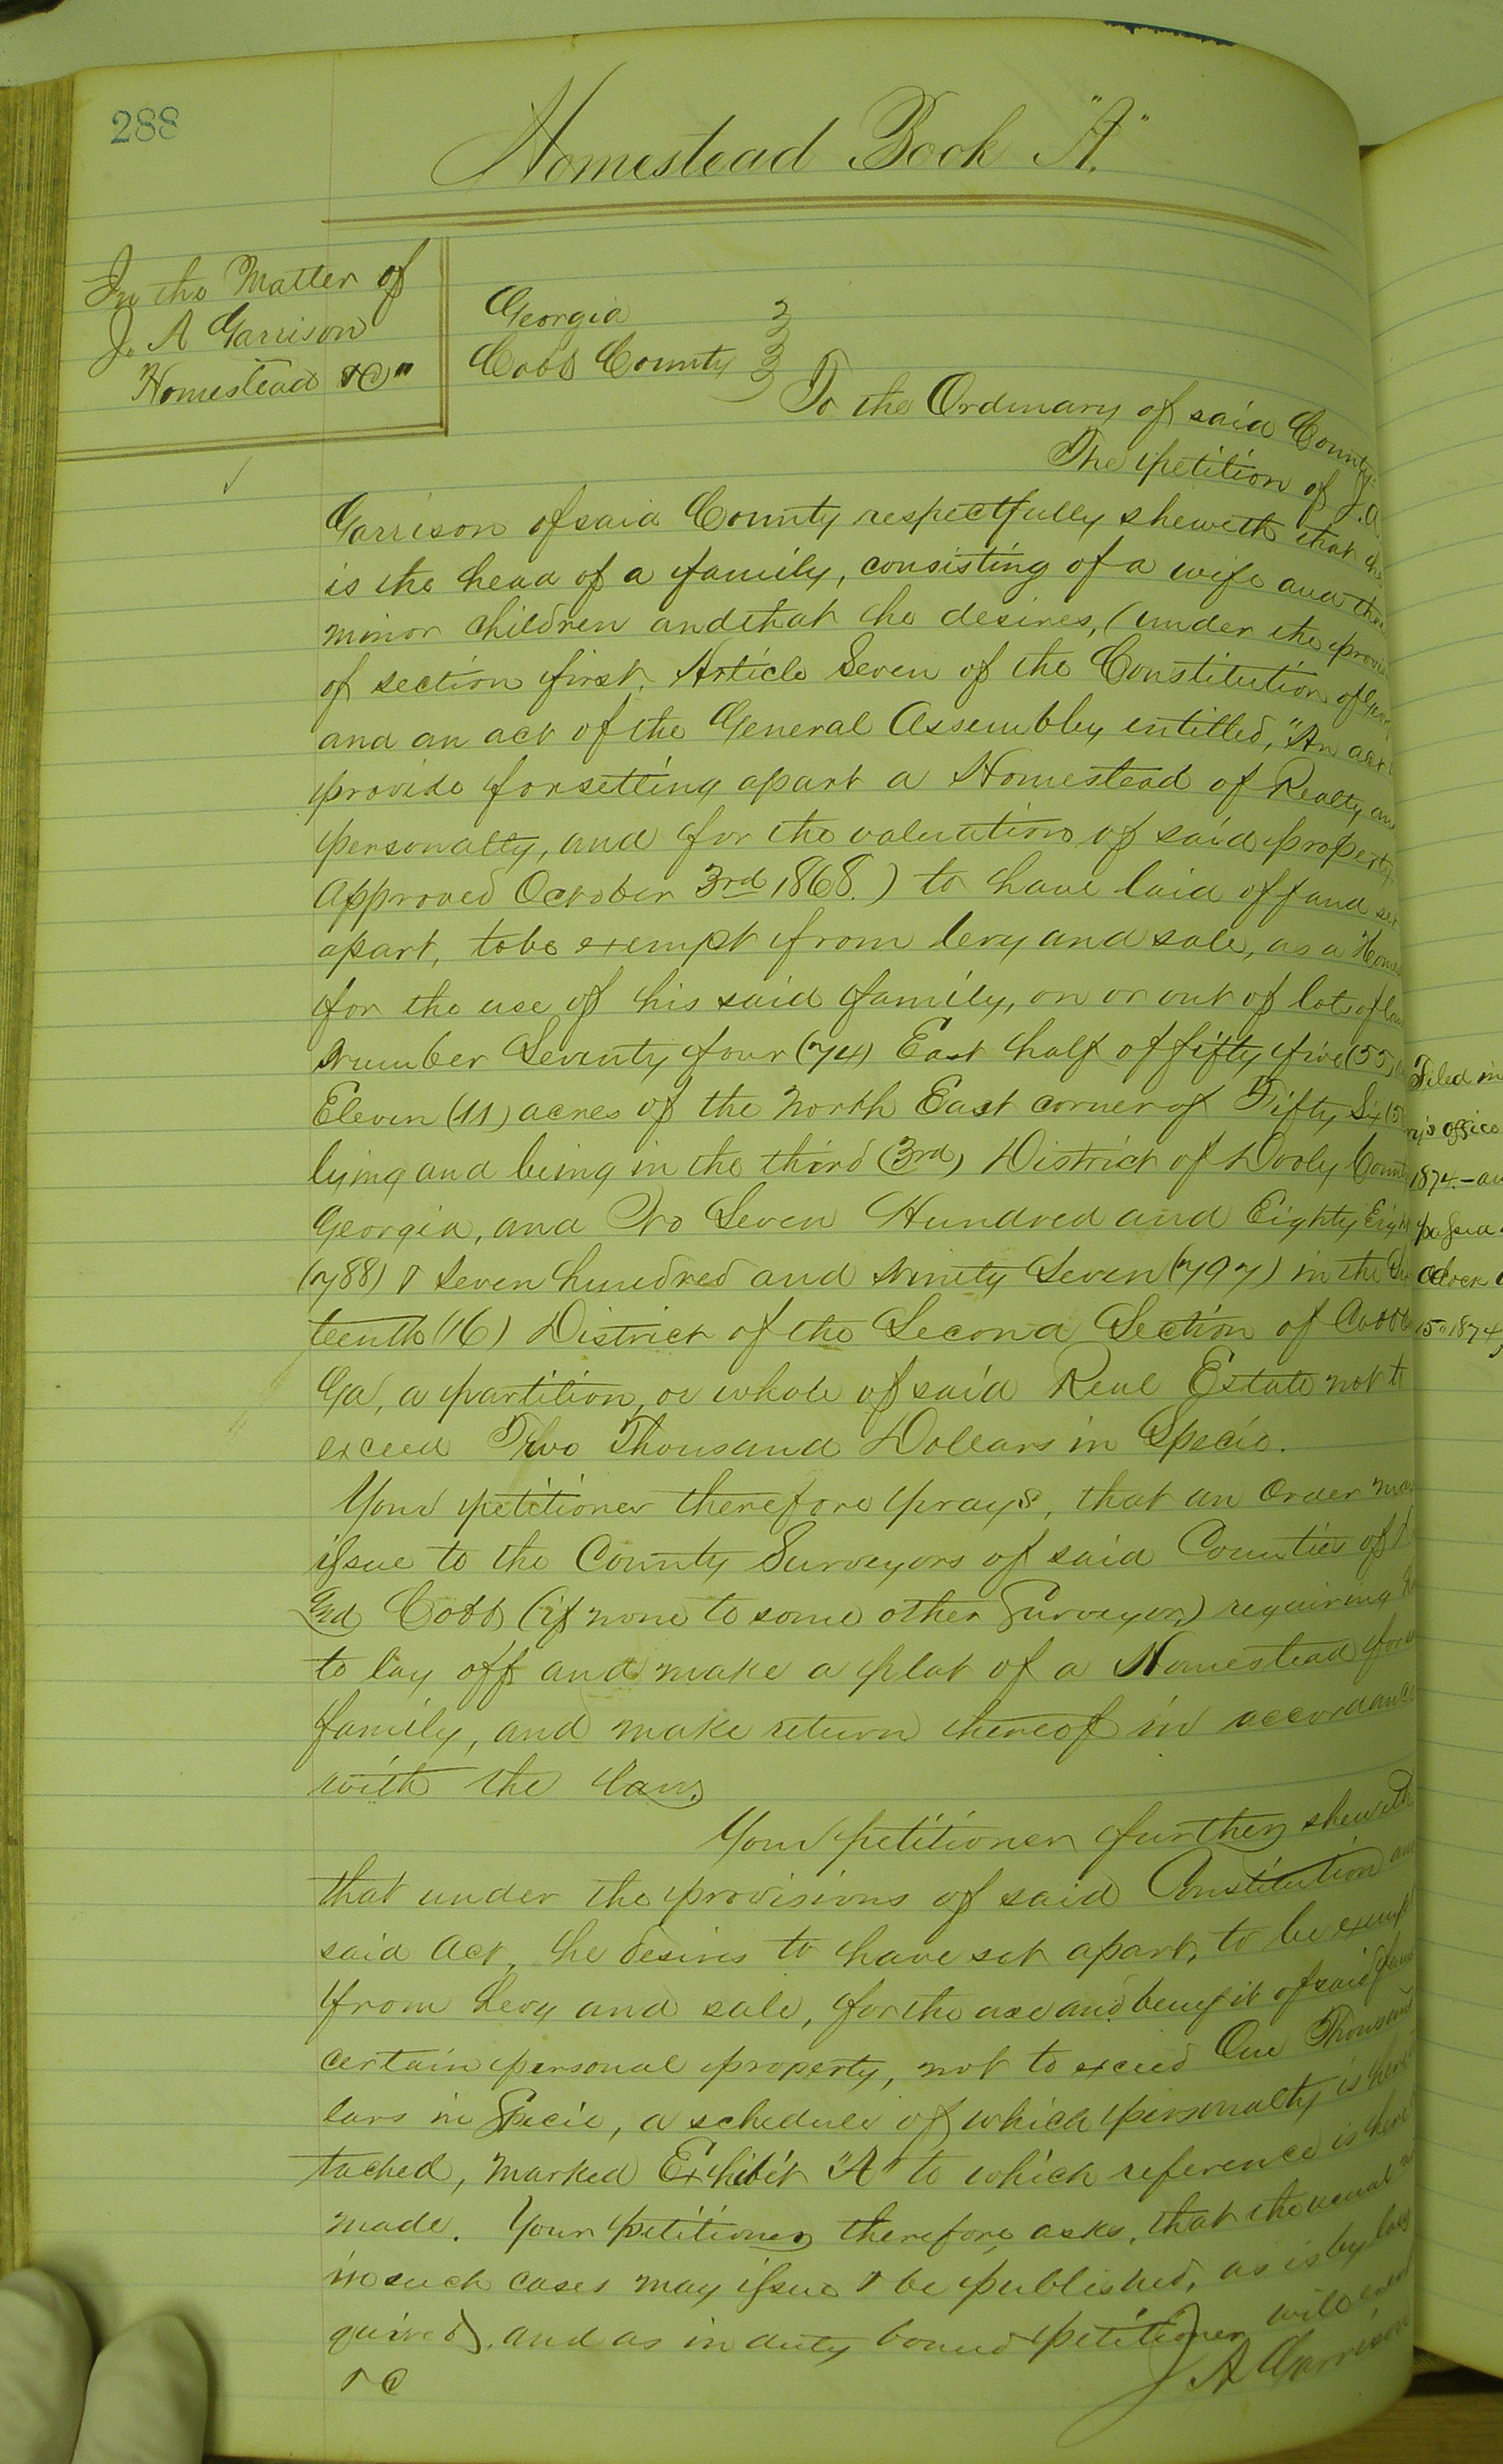 288
Homestead Book "A."
In the Matter of
J. A Garrison
Homestead &C"
Georgia
Cobb County
To the Ordinary of said County.
The petition of J. A.
Garrison of said County respectfully sheweth that he
is the head of a family, consisting of a wife and
minor children and that he desires, (under the
of section first, Article Seven of the Constitution of
and an act of the General Assembly, entitled, "An act
provide for setting apart a Homestead of Realty an
personalty, and for the valuation of said property
Approved October 3rd 1868.) to have laid off and set
apart, to be exempt from levy and sale, as a Home
for the use of his said family, on or out of lots of
Number Seventy four (74) East half of fifty five (55)
Eleven (11) acres of the North East corner of Fifty Six (5
lying and being in the third (3rd) District of Dooly County
Georgia, and No Seven Hundred and Eighty Eight
(788) & Seven hundred and Ninety Seven (797) in the Six
teenth (16) District of the Second Section of Cobb
Ga, a partition, or whole of said Real Estate not to
exceed Two Thousand Dollars in Specie.
Your petitioner therefore prays, that an Order may
issue to the County Surveyors of said Counties of D
And Cobb (if none to some other Surveyor,) requiring
to lay off and make a plat of a Homestead for
family, and make return thereof in accordance
with the law.
Your petitioner further sheweth
that under the provisions of said Constitution an
said Act, he desires to have set apart, to be exempt
from Levy and sale, for the use and benefit of said fam
certain personal property, not to exceed One Thousand
lars in Specie, a schedule of which personalty is here
tached, marked Exhibit "A" to which reference is here
made. Your petitioner therefore asks, that the usual
in such cases may issue & be published, as is by law
quired, and as in duty bound petitioner will ever
& C
J A Garrison
Filed in
ry's office
1874.-an
passed
Oclock
15" 1874,